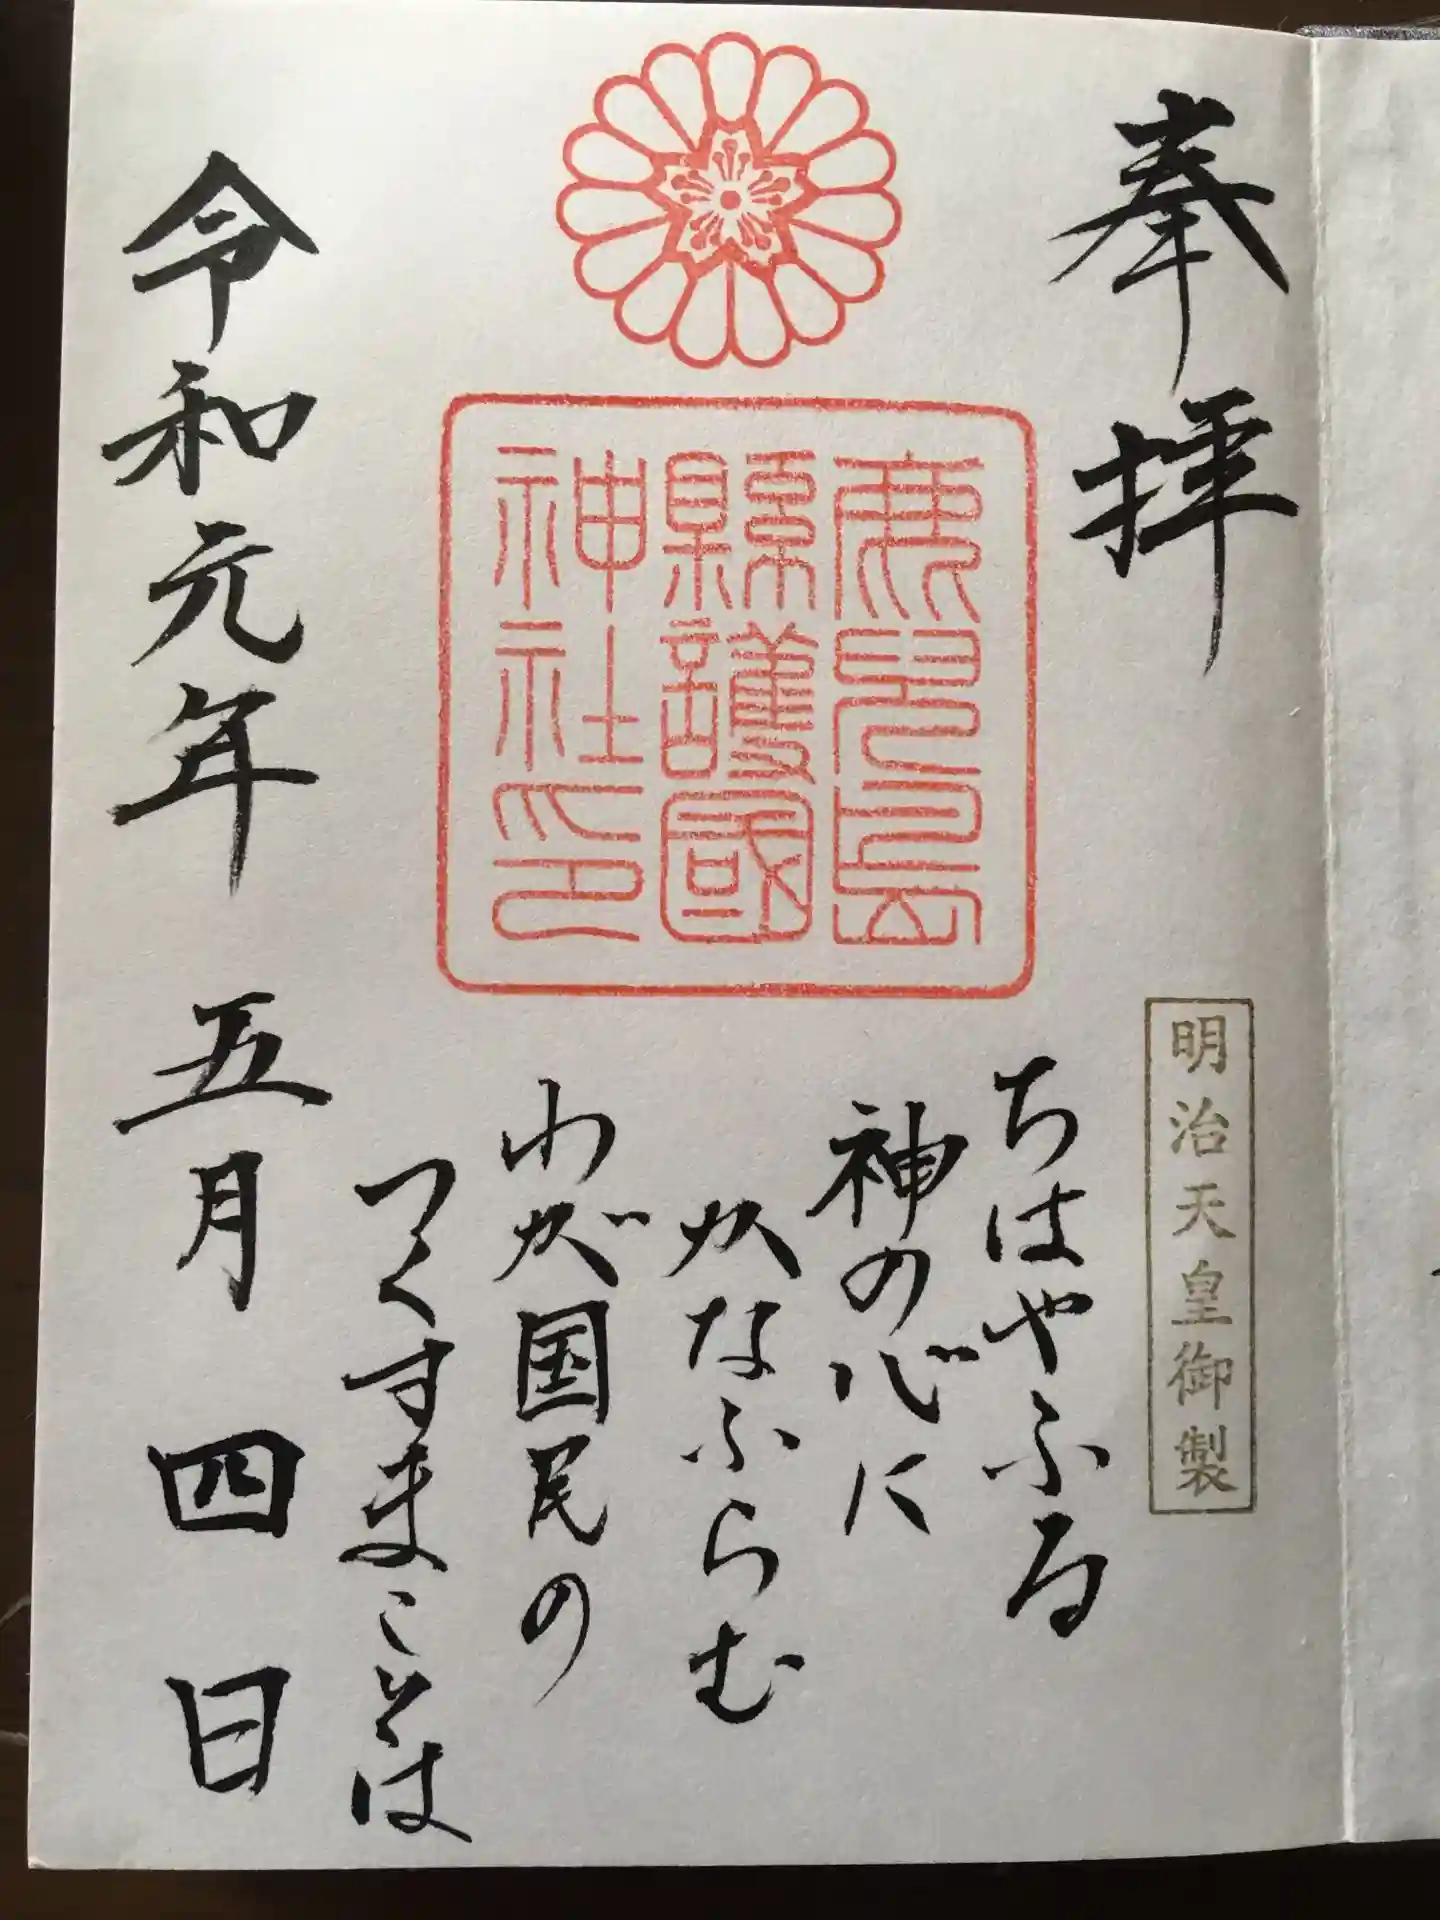 奉拝
鹿兒島
縣護國
神社印
明治天皇御製
ちはやふる
神の心に
かなふらむ
わが国民の
つくすまことは
令和元年五月四日